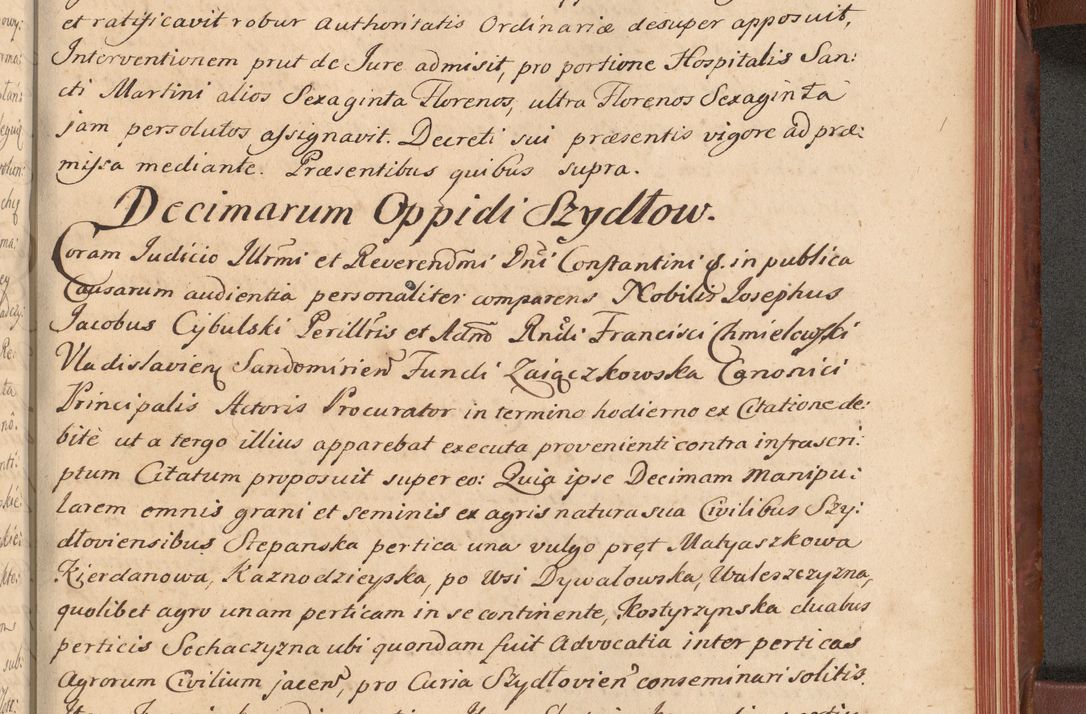 et ratificavit robur Authoritatis Ordinariæ desuper apposuit,
Interventionem prut de Jure admisit, pro portione Hospitalis San:
cti Martini alios Sexaginta Florenos, ultra Florenos Sexaginta
jam persolutos assignavit. Decreti sui præsentis vigore ad præ:
missa mediante. Præsentibus quibus supra.
Decimarum Oppidi Szydłow.
Coram Judicio Illrm̃i et Reverendm̃i Dñi Constantini &. in publica
Causarum audientia personaliter comparens Nobilis Josephus
Jacobus Cybulski Perillr̃is et Adm̃ Rñdi Francisci Chmielewski
Vladislavien Sandomirien Fundi Zaiączkowska Canonici
Principalis Actoris Procurator in termino hodierno ex Citatione de:
bitè ut a tergo illius apparebat executa provenienti contra infrascri:
ptum Citatum proposuit super eo: Quia ipse Decimam Manipu:
larem omnis grani et seminis ex agris natura sua Civilibus Szy:
dłoviensibus Stepanska pertica una vulgo pręt Matyaszkowa
Kierdanowa, Kaznodzieyska, po Wsi Dywałowska, Waleszczyzna,
quolibet agro unam perticam in se continente, Kostyrzynska duabus
perticis Sochaczyzna ubi quondam fuit Advocatia inter perticas
Agrorum Civilium jacen, pro Curia Szydłovien conseminari solitis.